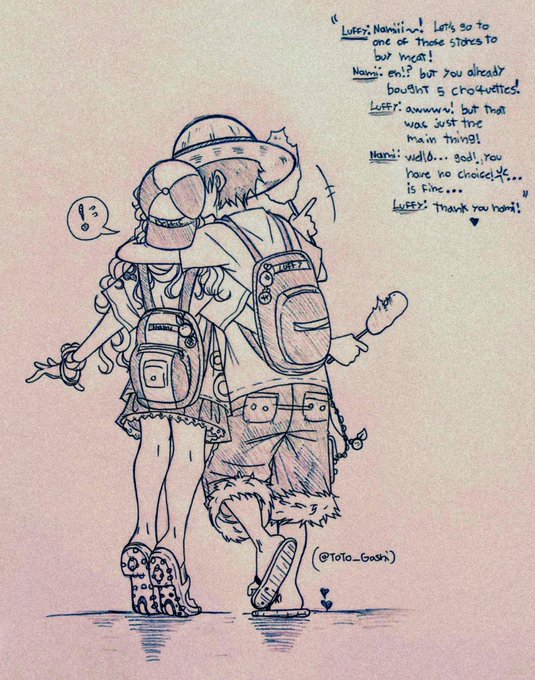 "Luffy: Namii~! Let's go to
one of those stores to
buy meat!
Nami: eh!? but you already
bought 5 croquettes!
Luffy: awww~! but that
was just the
main thing!
Nami: well... god!, you
have no choice!
is fine...
Luffy: thank you nami! "
!
LUFFY
(@ToTo_Gashi)